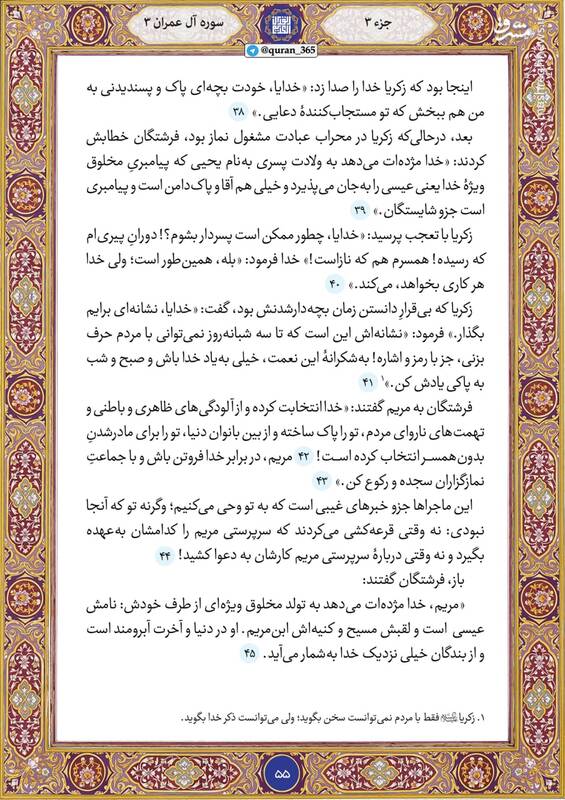 جزء ۳
سوره آل عمران ۳
مشرق
@quran_365
اینجا بود که زکریا خدا را صدا زد: «خدایا، خودت بچه‌ای پاک و پسندیدنی به
من هم ببخش که تو مستجاب‌کنندهٔ دعایی.» ۳۸
بعد، درحالی‌که زکریا در محراب عبادت مشغول نماز بود، فرشتگان خطابش
کردند: «خدا مژده‌ات می‌دهد به ولادت پسری به‌نام یحیی که پیامبریِ مخلوق
ویژهٔ خدا یعنی عیسی را به‌جان می‌پذیرد و خیلی هم آقا و پاک‌دامن است و پیامبری
است جزو شایستگان.» ۳۹
زکریا با تعجب پرسید: «خدایا، چطور ممکن است پسردار بشوم؟! دورانِ پیری‌ام
که رسیده! همسرم هم که نازاست!» خدا فرمود: «بله، همین‌طور است؛ ولی خدا
هر کاری بخواهد، می‌کند.» ۴۰
زکریا که بی‌قرارِ دانستن زمان بچه‌دارشدنش بود، گفت: «خدایا، نشانه‌ای برایم
بگذار.» فرمود: «نشانه‌اش این است که تا سه شبانه‌روز نمی‌توانی با مردم حرف
بزنی، جز با رمز و اشاره! به‌شکرانهٔ این نعمت، خیلی به‌یاد خدا باش و صبح و شب
به پاکی یادش کن.»۱ ۴۱
فرشتگان به مریم گفتند: «خدا انتخابت کرده و از آلودگی‌های ظاهری و باطنی و
تهمت‌های ناروای مردم، تو را پاک ساخته و از بین بانوان دنیا، تو را برای مادرشدنِ
بدون‌همسر انتخاب کرده است! ۴۲ مریم، در برابر خدا فروتن باش و با جماعتِ
نمازگزاران سجده و رکوع کن.» ۴۳
این ماجراها جزو خبرهای غیبی است که به تو وحی می‌کنیم؛ وگرنه تو که آنجا
نبودی: نه وقتی قرعه‌کشی می‌کردند که سرپرستی مریم را کدامشان به‌عهده
بگیرد و نه وقتی دربارهٔ سرپرستی مریم کارشان به دعوا کشید! ۴۴
باز، فرشتگان گفتند:
«مریم، خدا مژده‌ات می‌دهد به تولد مخلوق ویژه‌ای از طرف خودش: نامش
عیسی است و لقبش مسیح و کنیه‌اش ابن‌مریم. او در دنیا و آخرت آبرومند است
و از بندگان خیلی نزدیک خدا به‌شمار می‌آید. ۴۵
۱. زکریا فقط با مردم نمی‌توانست سخن بگوید؛ ولی می‌توانست ذکر خدا بگوید.
۵۵